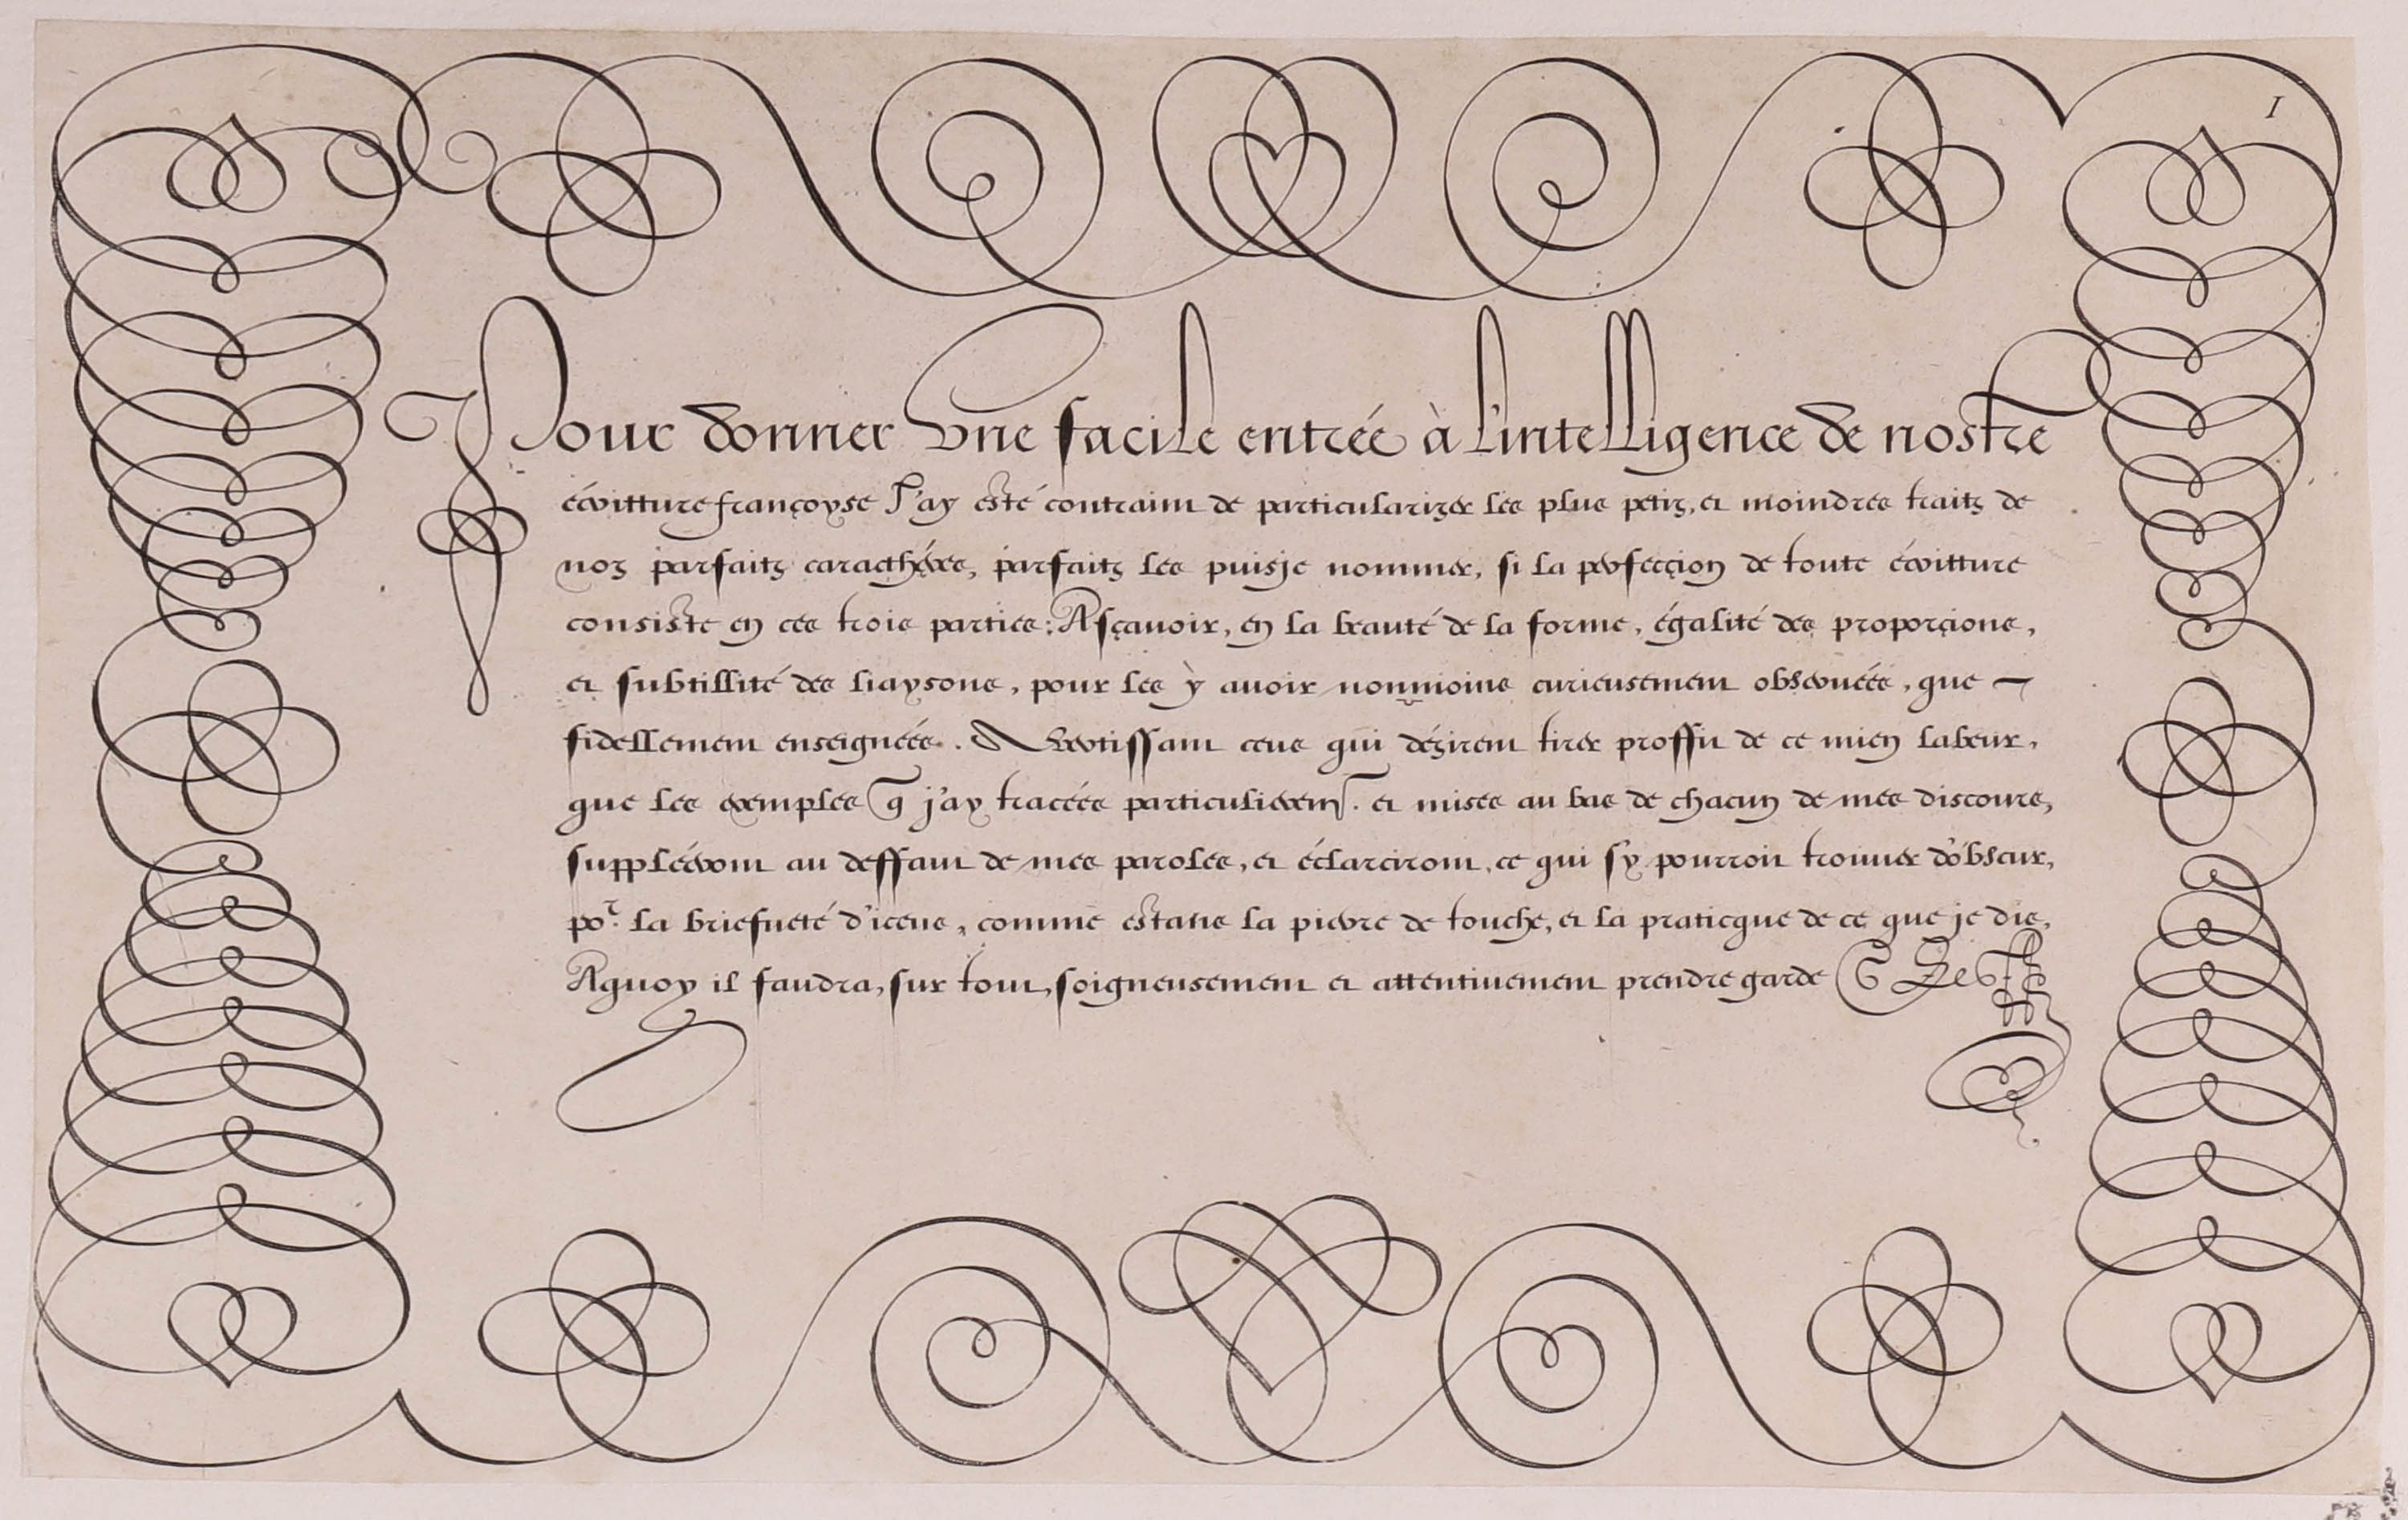 1
Pour donner vne facile entrée à l'intelligence de nostre
écritture françoyse J'ay esté contraint de particularizer les plus petiz, et moindres traits de
noz parfaits caracthéres, parfaits les puisje nommer, si la perfecçion de toute écritture
consiste en ces trois parties: Asçauoir, en la beauté de la forme, égalité des proporçions,
et subtillité des liaysons, pour les ỳ auoir nonmoins curieusement obseruéés, que
fidellement enseignéés. Avertissant ceus qui dézirent tirer proffit de ce mien labeur,
que les exemples q̃ j'ay tracéés particulierem̃t. et mises au bas de chacun de mes discours,
suppléeront au deffaut de mes paroles, et éclarciront, ce qui s'y pourroit trouuer d'obscur,
poʳ. la briefueté d'iceus, comme estans la pierre de touche, et la praticque de ce que je dis,
Aquoy il faudra, sur tout, soigneusement et attentiuement prendre garde